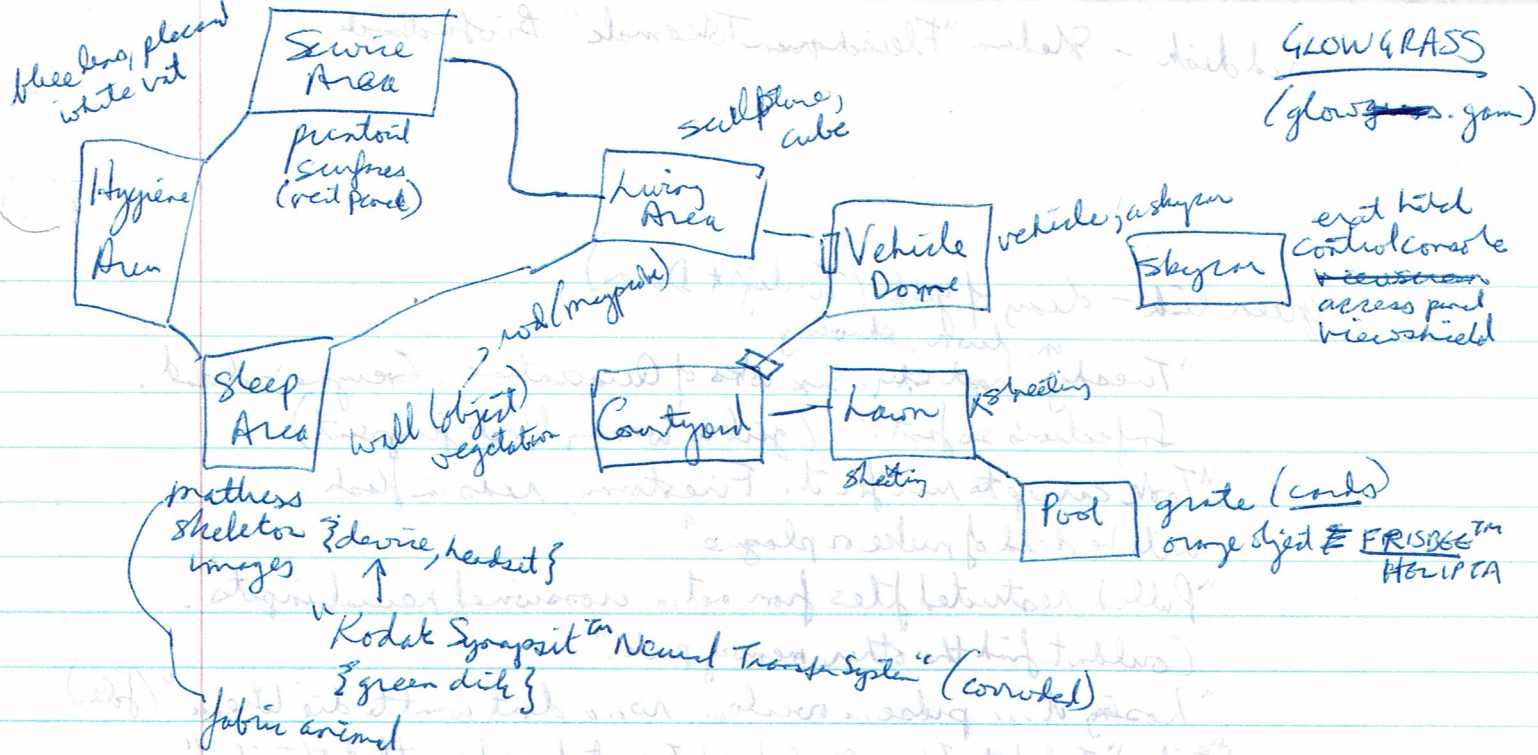 GLOWGRASS
(glowgrass.gam)
blue lens, placard
white vat
Service
Area
surfaces
Hygiene
Area
sculpture,
cube
Living
Area
Vehicle
Dome
vehicle, a skycar
Skycar
control console
viewscreen
access panel
viewshield
Sleep
Area
rod
wall (object)
vegetation
Courtyard
Lawn
sheeting
sheeting
Pool
grate (cards)
orange object FRISBEE™
HELIPTA
mattress
skeleton {device, headset}
images
"Kodak Synapsit™ Neural Transfer System" (corroded)
{green disk}
fabric animal